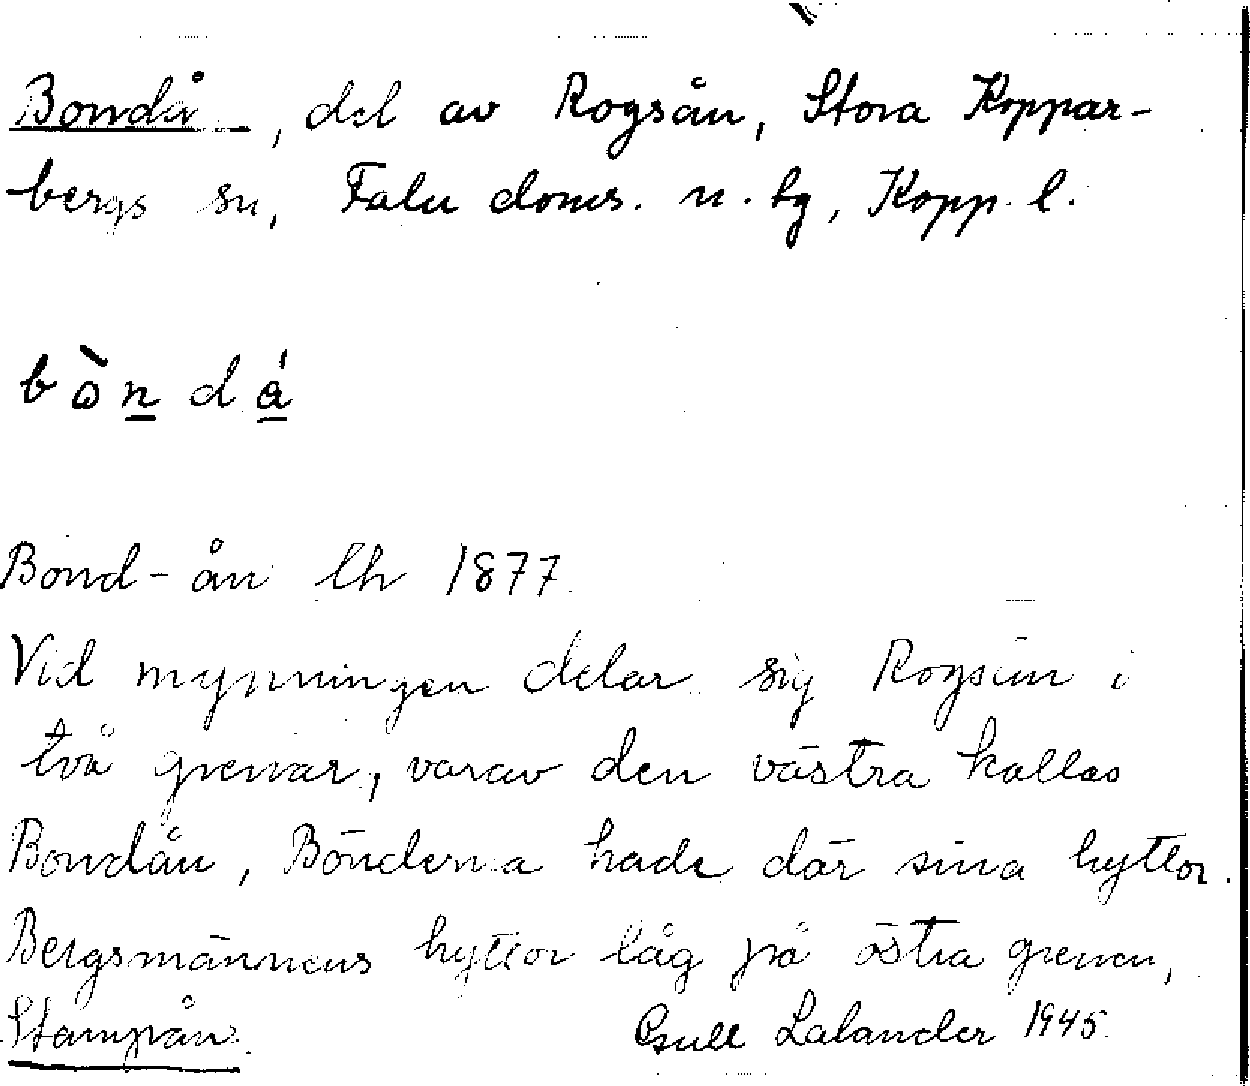 Bondå, del av Rogsån, Stora Koppar-
bergs sn, Falu doms. n. tg, Kopp. l.
bò̀n dá
Bond-ån lh 1877.
Vid mynningen delar sig Rogsån i
två grenar, varav den västra kallas
Bondån, Bönderna hade där sina hyttor.
Bergsmännens hyttor låg på östra grenen,
Stampån.
Gull Lalander 1945.